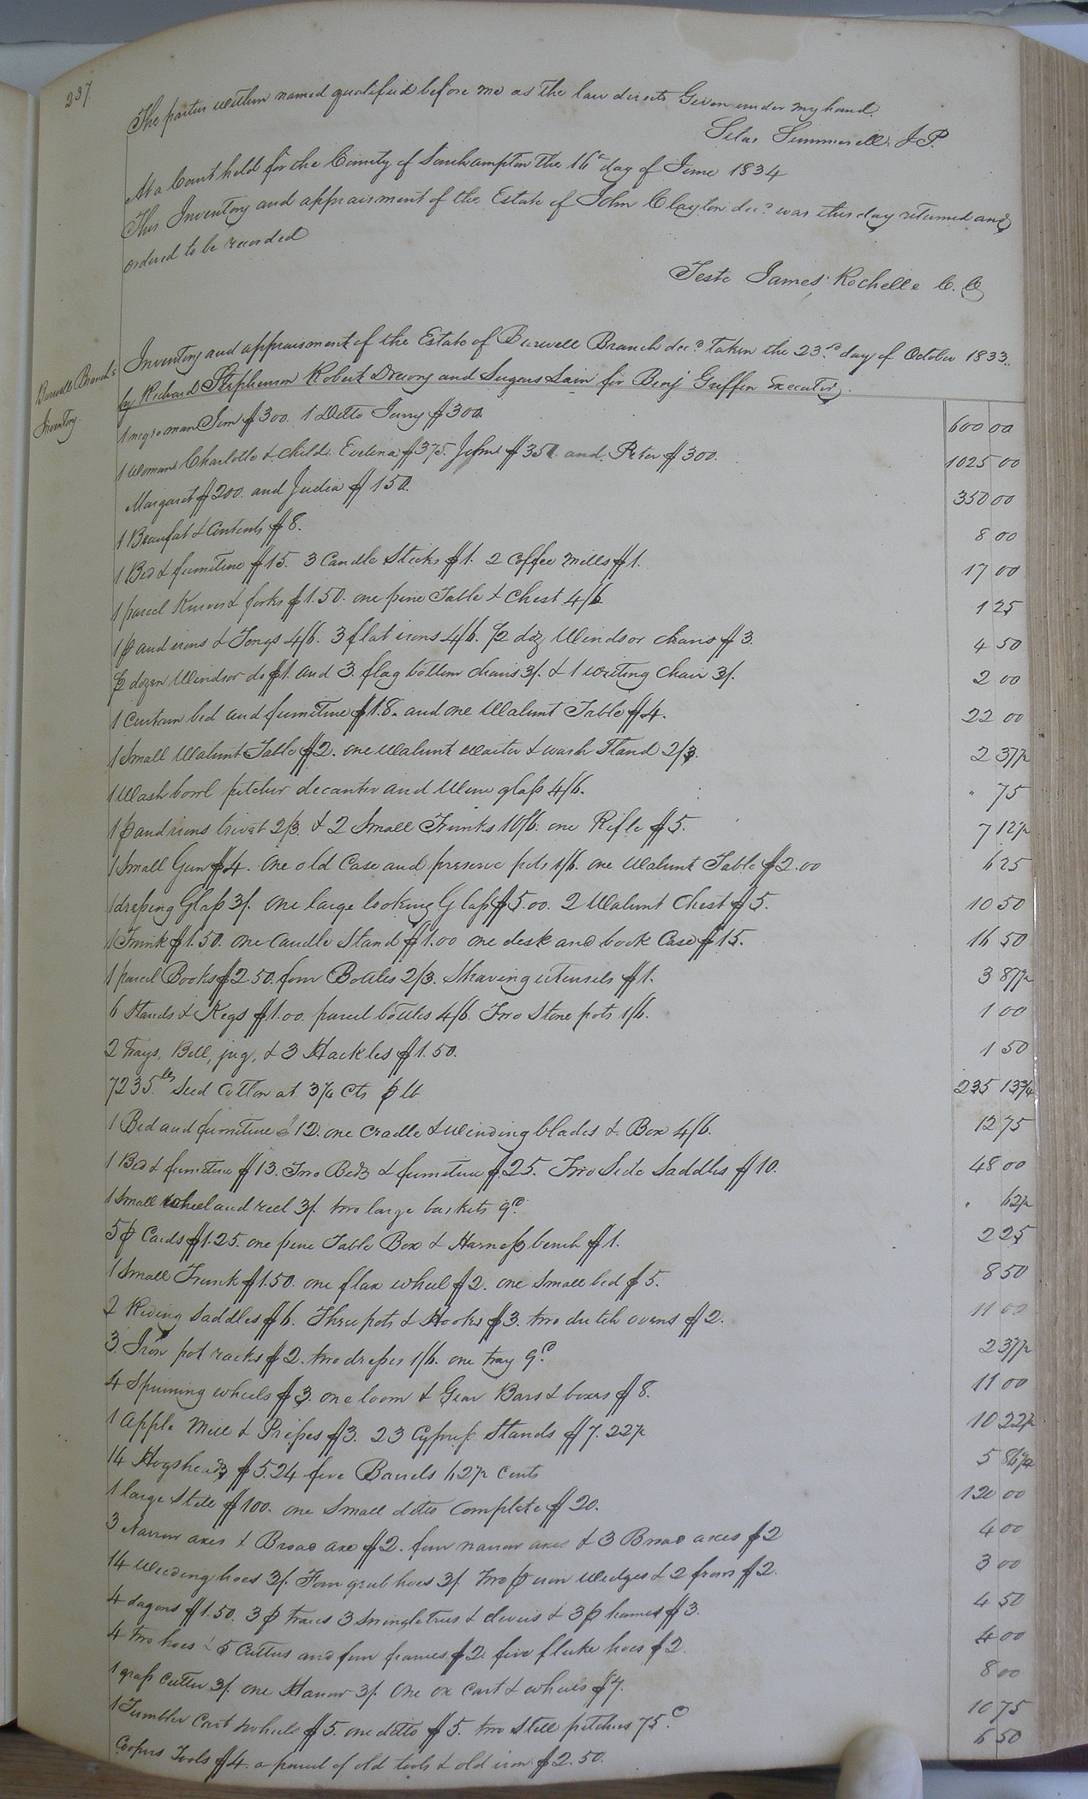 237
The parties within named qualified before me as the law directs Given under my hand.
Silas Summerell J.P.
At a Court held for the County of Southampton the 16th day of June 1834
This Inventory and appraisment of the Estate of John Clayton decd. was this day returned and
ordered to be recorded
Teste James Rochelle C. C
Burwell Branch's
Inventory
Inventory and appraisement of the Estate of Burwell Branch decd. taken the 23rd. day of October 1833.
by Richard Stephenson Robert Drewry and for Benj Griffin Executor.
1 negro man Sim $300. 1 Ditto Jurry $300 600 00
1 Woman Charlotte & child. Evelina $375. John $350 and Peter $300. 1025 00
Margaret $200. and Judia $150. 350 00
1 Beaufat & Contents $8. 8 00
1 Bed & furniture $15. 3 Candle Sticks $1. 2 Coffee mills $1. 17 00
1 parcel Knives & forks $1.50. one pine Table & Chest 4/6 1 25
1 p andirons & Tongs 4/6. 3 flat irons 4/6. ½ doz Windsor chairs $3. 4 50
½ dozen Windsor do $1. and 3 flag bottom chairs 3/. & 1 writing Chair 3/. 2 00
1 Curtain bed and furniture $18. and one Walnut Table $4. 22 00
1 Small Walnut Table $2. one Walnut waiter & wash Stand 2/3. 2 37½
1 Wash bowl pitcher decanter and Wine glass 4/6. " 75
1 p andirons trivet 2/3. & 2 Small Trunks 10/6. one Rifle $5. 7 12½
1 Small Gun $4. One old Case and preserve pots 1/6. one Walnut Table $2.00 6 25
1 dressing Glass 3/. one large looking Glass $5.00. 2 Walnut Chest $5. 10 50
1 Trunk $1.50. one Candle Stand $1.00 one desk and book Case $15. 16 50
1 parcel Books $2.50. four Bottles 2/3. Shaving utensils $1. 3 87½
6 Stands & Kegs $1.00. parcel bottles 4/6. Two Stone pots 1/6. 1 00
2 Trays, Bell, jug, & 3 Hackles $1.50. 1 50
7235 lbs Seed Cotton at 3¼ Cts p lb 235 13¾
1 Bed and furniture $12. one Cradle & winding blades & Box 4/6. 12 75
1 Bed & furniture $13. Two Beds & furniture $25. Two Side Saddles $10. 48 00
1 Small wheel and reel 3/. two large baskets 9d. " 62½
5 p Cards $1.25. one pine Table Box & Harness bench $1. 2 25
1 Small Trunk $1.50. one flax wheel $2. one Small bed $5. 8 50
2 Riding Saddles $6. Three pots & Hooks $3. two dutch ovens $2. 11 00
3 Iron pot racks $2. two dresses 1/6. one tray 9d. 2 37½
4 Spinning wheels $3. one loom & Gear Bars & boxes $8. 11 00
1 Apple Mill & Presses $3. 23 Cypress Stands $7.22½ 10 22½
14 Hogsheads $5.24 five Barrels 62½ cents 5 86½
1 large Still $100. one Small ditto Complete $20. 120 00
3 Narrow axes & Broad axe $2. four narrow axes & 3 Broad axes $2 4 00
14 Weeding hoes 3/. Four grub hoes 3/. two p iron Wedges & 2 frows $2. 3 00
4 dagons $1.50. 3 p traces 3 Swingletrees & clevis & 3 p hames $3. 4 50
4 two hoes & 5 Cutters and four frames $2. five fluke hoes $2. 4 00
1 grass Cutter 3/. one Harrow 3/. One ox Cart & wheels $7. 8 00
1 Tumbler Cart wheels $5. one ditto $5. two Still pitchers 75.c 10 75
Coopers Tools $4. a parcel of old tools & old iron $2.50. 6 50